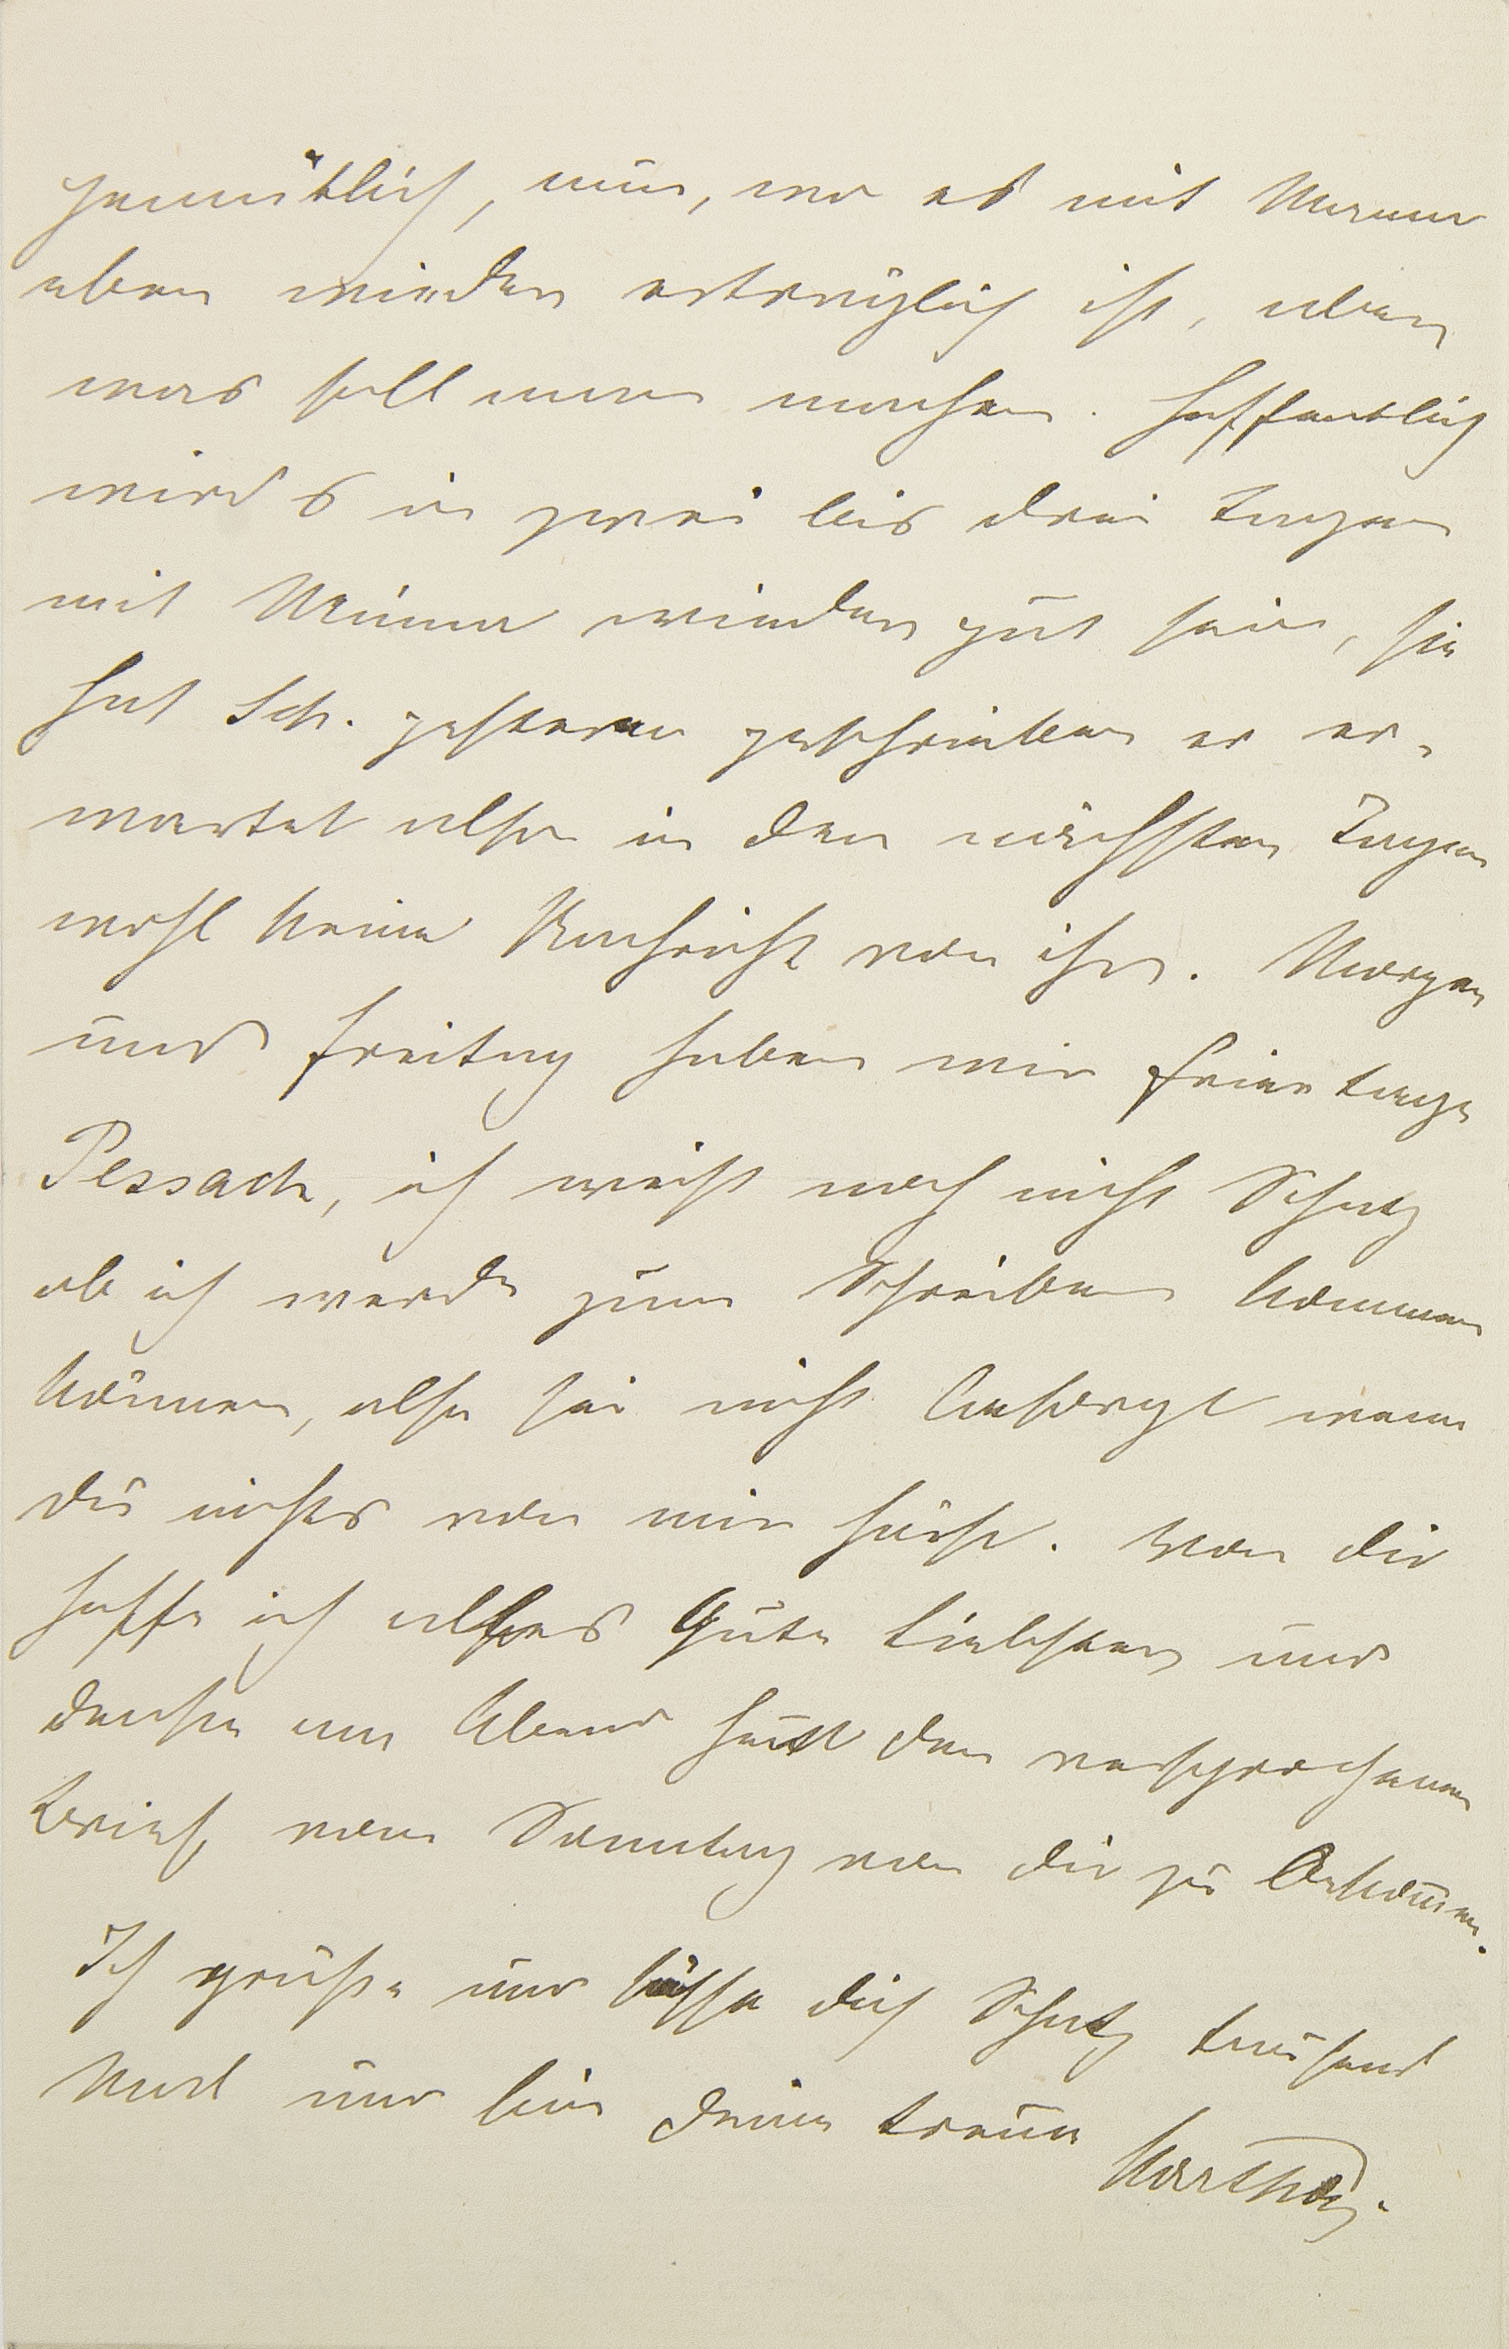 gemütlich, nun, wo es mit Mama
eben wieder erträglich ist, aber
was soll man machen. Hoffentlich
wird's in zwei bis drei Tagen
mit Minna wieder gut sein, sie
hat Sch. gestern geschrieben er er-
wartet also in den nächsten Tagen
wohl keine Nachricht von ihr. Morgen
und Freitag haben wir Feiertage
Pessach, ich weiß noch nicht Schatz
ob ich werde zum Schreiben kommen
können, also sei nicht besorgt wenn
du nichts von mir hörst. Von dir
hoffe ich alles Gute Liebster und
denke am Abend heut den versprochenen
Brief vom Sonntag von dir zu bekommen.
Ich grüße und küsse dich Schatz tausend
Mal und bin deine treue
Marthe.